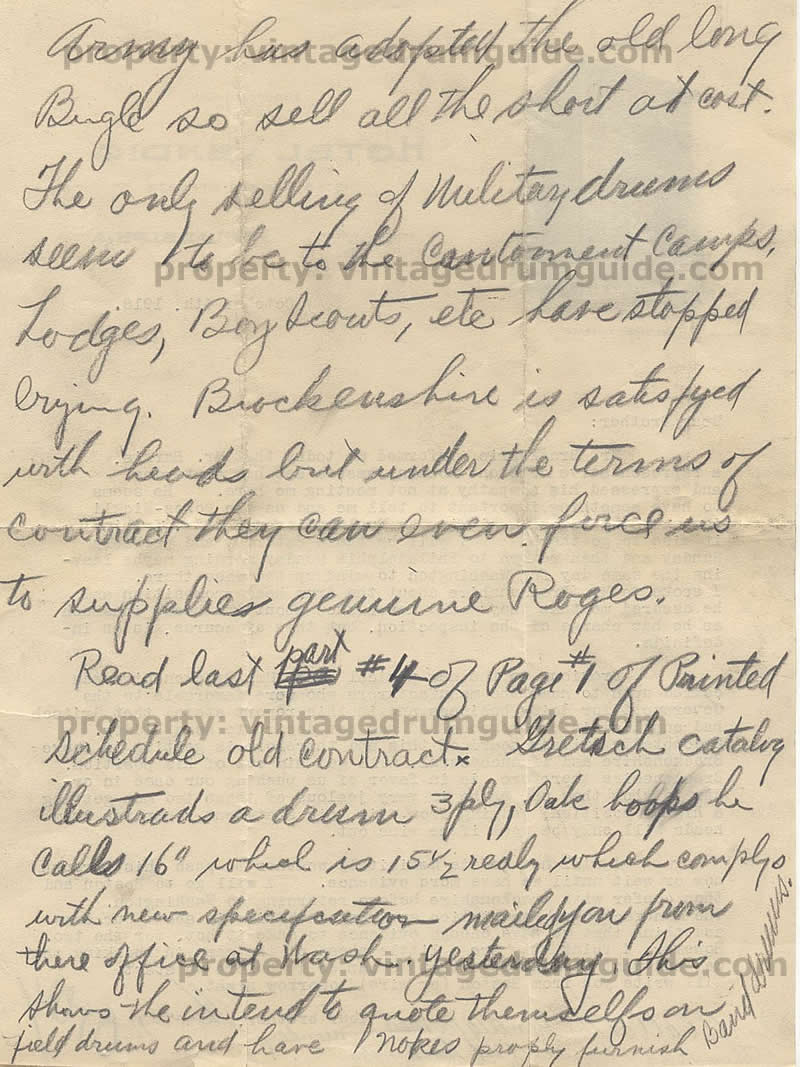 Army has adopted the old long
Bugle so sell all the short at cost.
The only selling of Military drums
seem to be to the Cantonment Camps,
Lodges, Boy Scouts, etc have stopped
crying. Brockenshire is satisfyed
with heads but under the terms of
contract they can even force us
to supplies genuine Roges.
Read last part #4 of Page #1 of Printed
Schedule old contract. Gretsch catalog
illustrads a drum 3 ply, Oak hoops he
calls 16" which is 15 1/2 realy which complys
with new specifcation mailed you from
there office at Wash. yesterday. This
shows the intend to quote themselfs on
field drums and have Nokes proply furnish
Band Drums.
property: vintagedrumguide.com
property: vintagedrumguide.com
property: vintagedrumguide.com
property: vintagedrumguide.com